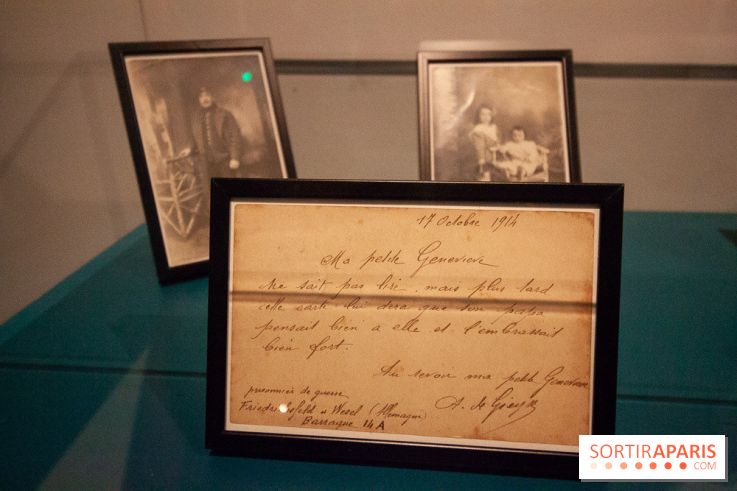 17 Octobre 1914
Ma petite Geneviève
Ne sait pas lire, mais plus tard
cette carte lui dira que son papa
pensait bien a elle et l'embrassait
bien fort.
Au revoir ma petite Geneviève
prisonnier de guerre
A. de
Friedrichsfeld a Wesel (Allemagne)
Barraque 14 A
SORTIRAPARIS
.COM